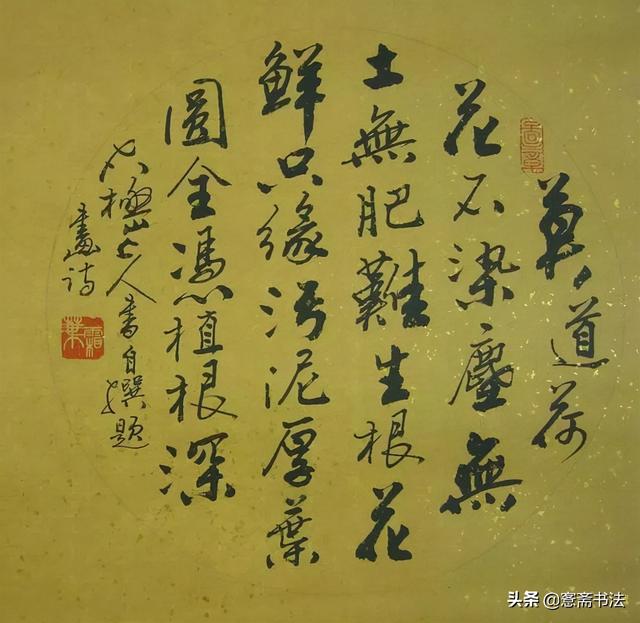 莫道荷
花不染塵無
土無肥難生根花
鮮只緣污泥厚葉
圓全憑植根深
極山人書自撰題
畫詩
霜葉
头条 @愙斋书法